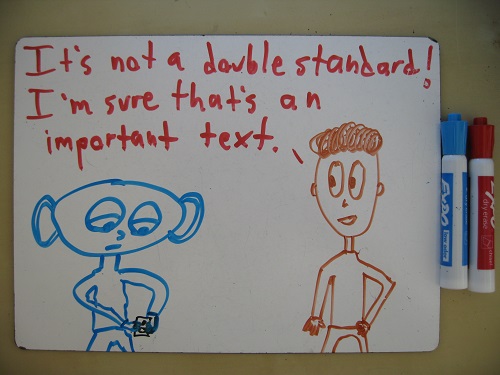 It's not a double standard!
I'm sure that's an
important text.
EXPO
dry erase